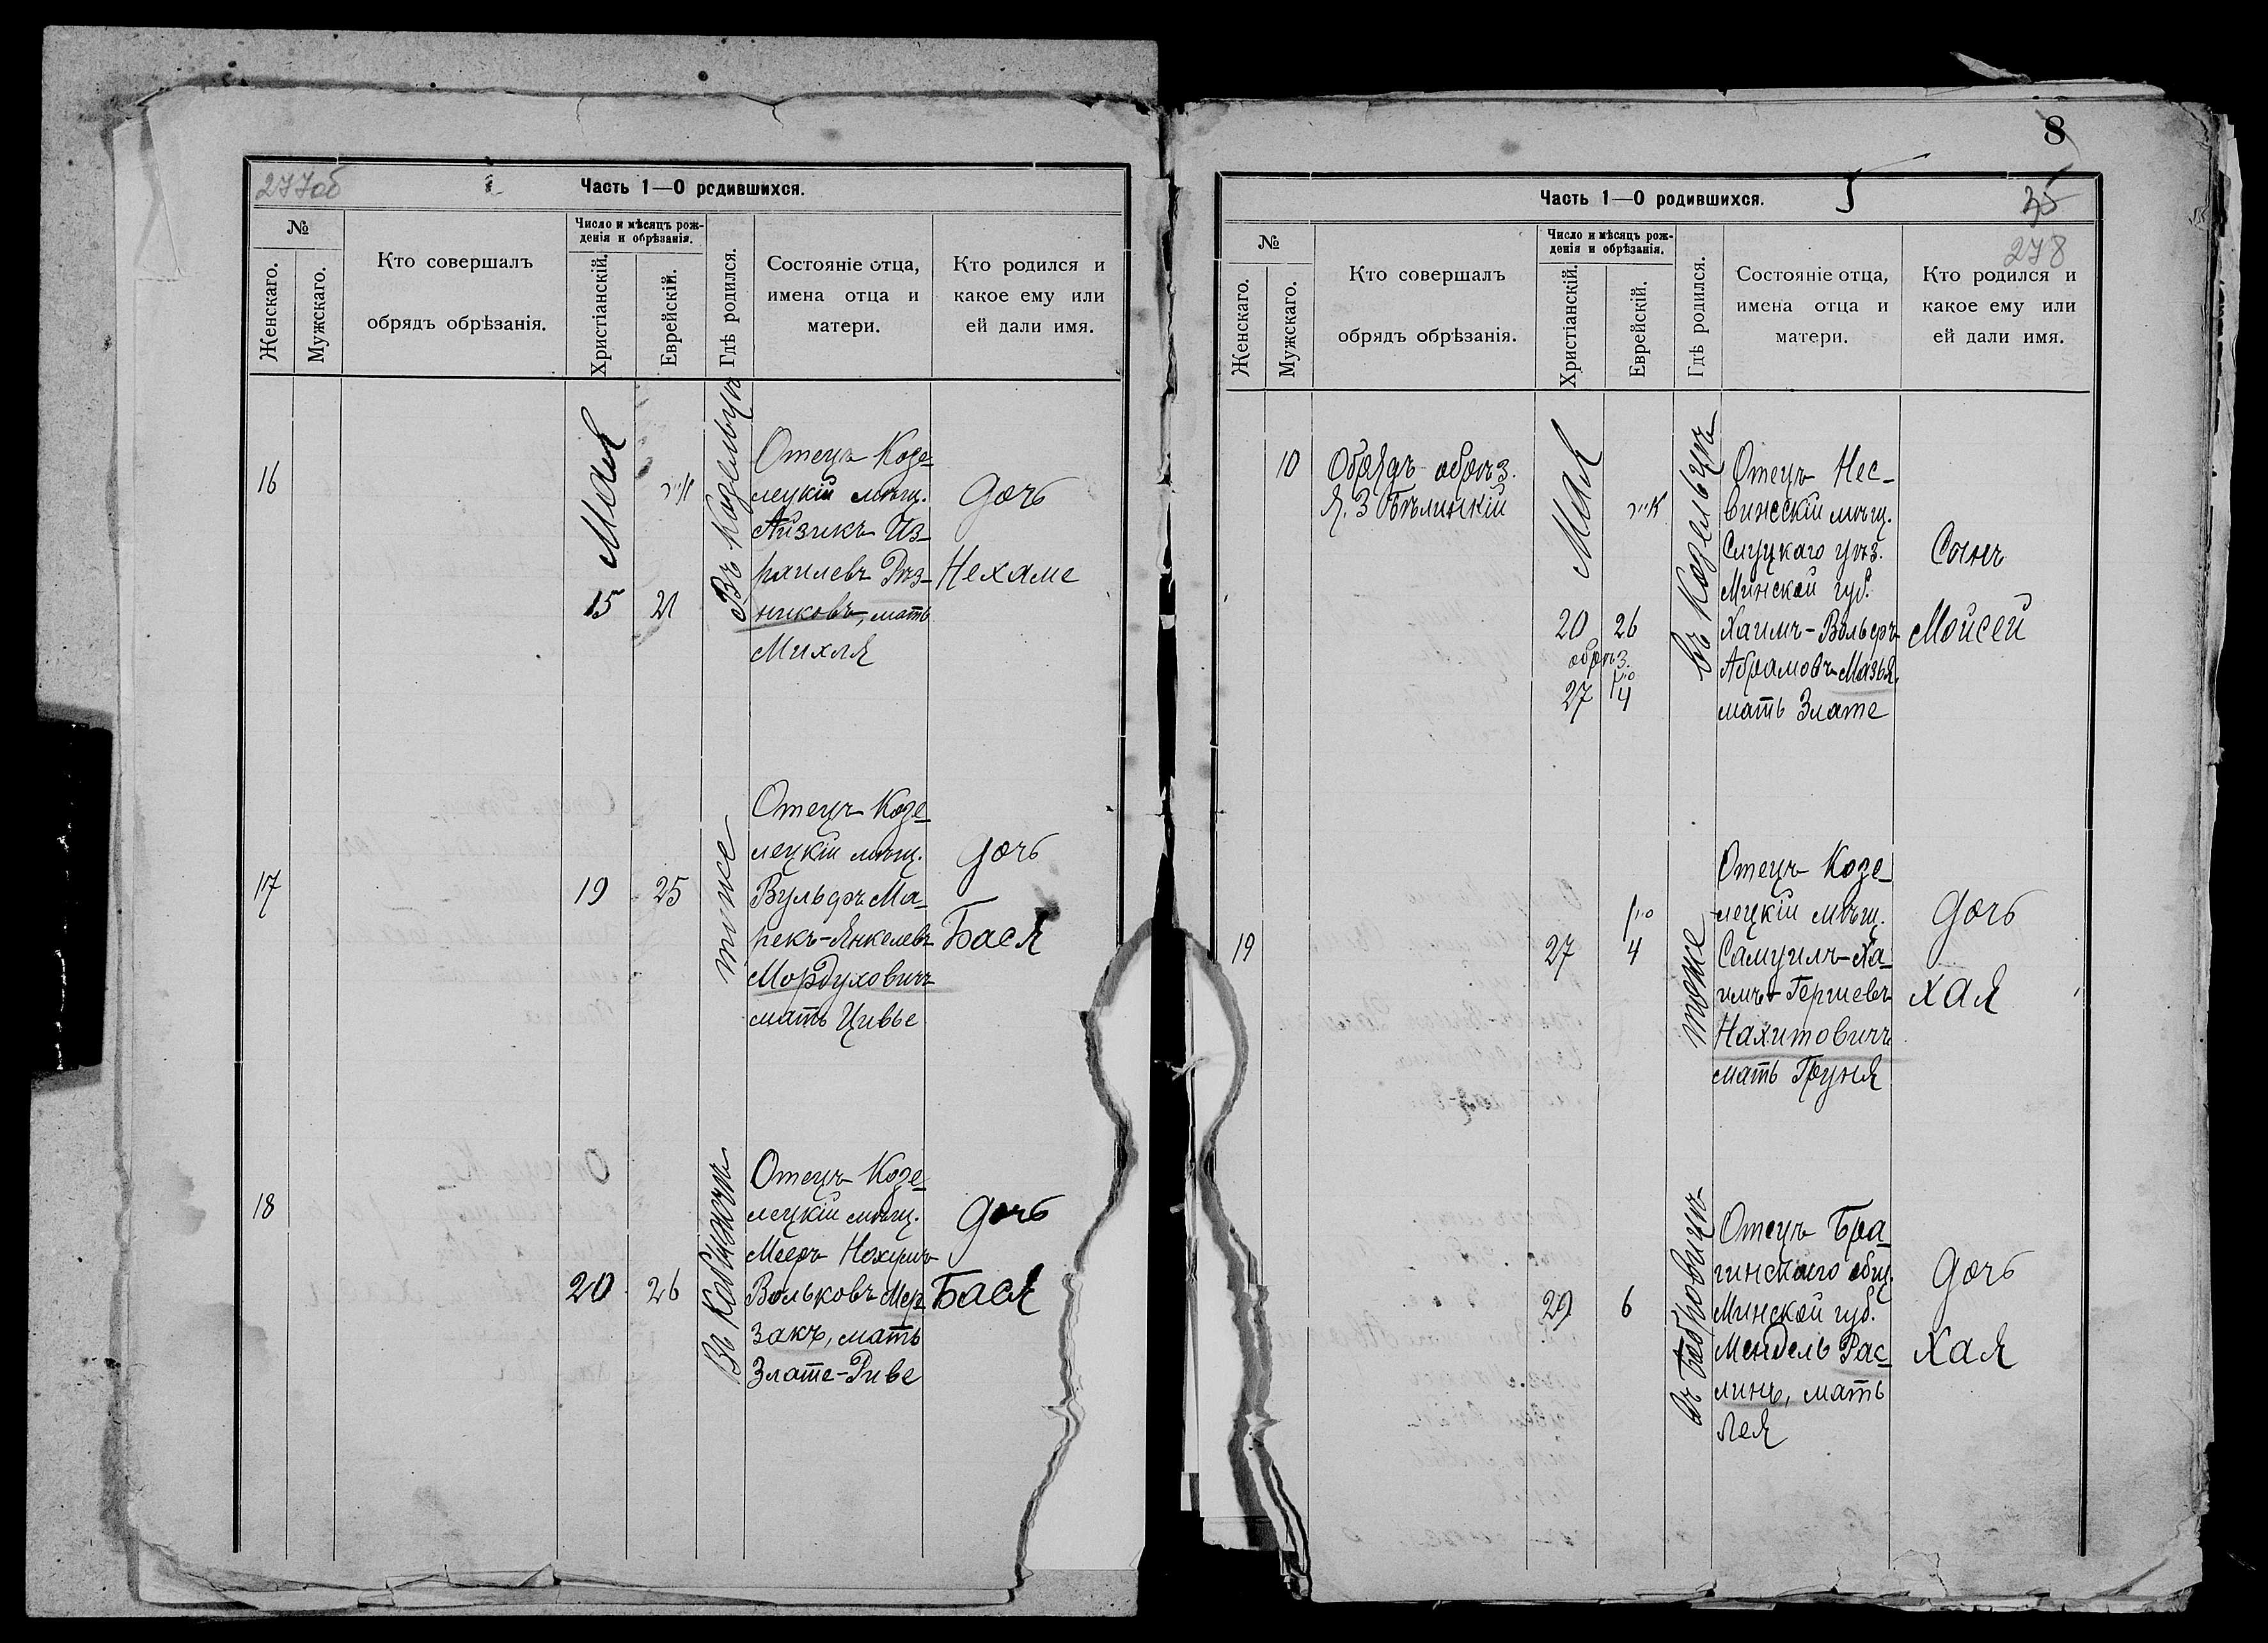 277об
Часть 1—О родившихся.
№
Женскаго.
Мужскаго.
Кто совершалъ
обрядъ обрѣзанія.
Число и мѣсяцъ рож-
денія и обрѣзанія.
Христіанскій.
Еврейскій.
Гдѣ родился.
Состояніе отца,
имена отца и
матери.
Кто родился и
какое ему или
ей дали имя.
16
Мая
15
אייר
21
Въ Козельцѣ
Отецъ Козе-
лецкій мѣщ.
Айзикъ Из-
раилевъ Рѣз-
никовъ, мать
Михля
дочь
Нехаме
17
19
25
тоже
Отецъ Козе-
лецкій мѣщ.
Вульфъ Ма-
рекъ-Янкелевъ
Мордуховичъ
мать Цивье
дочь
Бася
18
20
26
Отецъ Козе-
лецкій мѣщ.
Мееръ Нохумъ
Вольковъ Мер
закъ, мать
Злате-Риве
дочь
Бася
8
Часть 1—О родившихся.
5
35
278
№
Женскаго.
Мужскаго.
Кто совершалъ
обрядъ обрѣзанія.
Число и мѣсяцъ рож-
денія и обрѣзанія.
Христіанскій.
Еврейскій.
Гдѣ родился.
Состояніе отца,
имена отца и
матери.
Кто родился и
какое ему или
ей дали имя.
10
Обрядъ обрѣз.
Я. З Бѣлинскій
Мая
20
обрѣз.
27
אייר
26
סיון
4
въ Козельцѣ
Отецъ Нес-
винескій мѣщ.
Слуцкаго уѣз.
Минской губ.
Хаимъ-Вольфъ
Абрамовъ Мазья,
мать Злате
Сынъ
Мойсей
19
27
סיון
4
тоже
Отецъ Козе-
лецкій мѣщ.
Самуилъ-Ха-
имъ Гершевъ
Нахимовичъ
мать Груня
дочь
Хая
29
6
въ Бобровицѣ
Отецъ Бра-
гинскаго общ.
Минской губ.
Мендель Рас-
линъ, мать
Лея
дочь
Хая